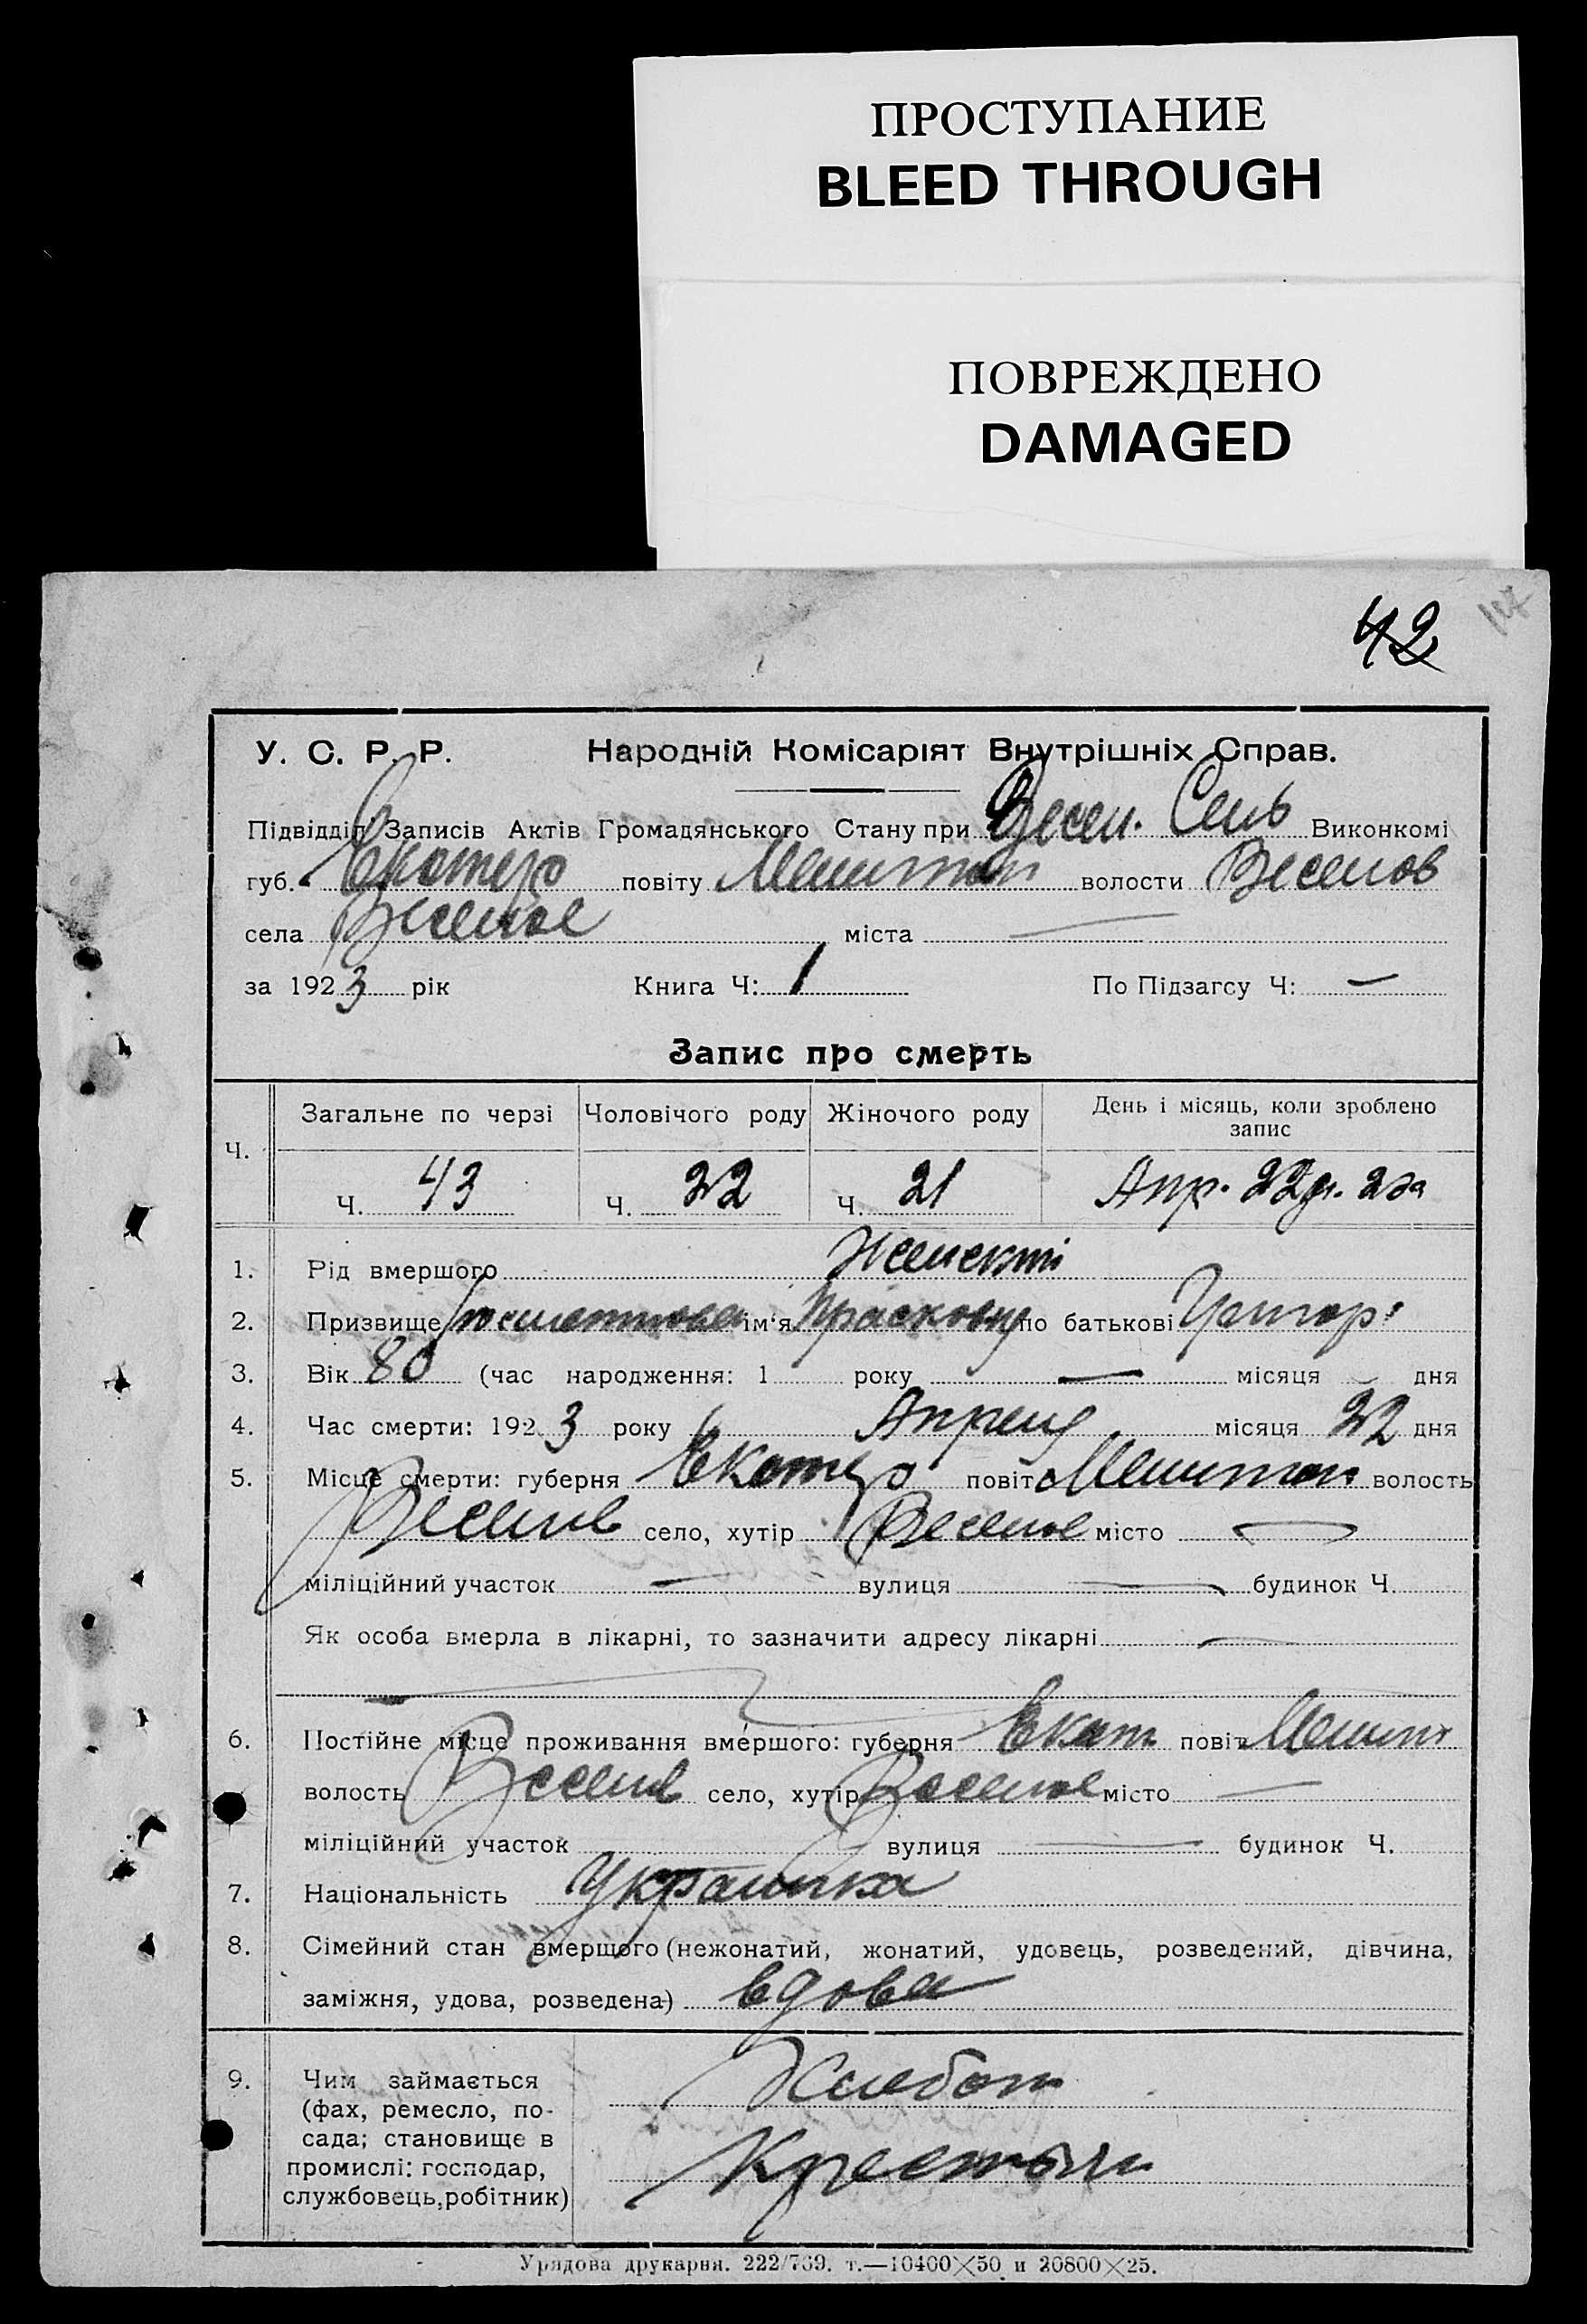 ПРОСТУПАНИЕ
BLEED THROUGH
ПОВРЕЖДЕНО
DAMAGED
42
У. С. Р. Р. Народній Комісаріят Внутрішніх Справ.
Підвідділ Записів Актів Громадянського Стану при Весел. Сель Виконкомі
губ. Екатер повіту Мелитоп волости Веселов
села Веселое міста —
за 1923 рік Книга Ч: 1 По Підзагсу Ч: —
Запис про смерть
Ч. Загальне по черзі Чоловічого роду Жіночого роду День і місяць, коли зроблено запис
Ч. 43 Ч. 22 Ч. 21 Апр. 22д.
1. Рід вмершого Женскті
2. Призвище ім'я Прасковія по батькові Григор.
3. Вік 80 (час народження: 1 року — місяця дня
4. Час смерти: 1923 року Апреля місяця 22 дня
5. Місце смерти: губерня Екатер повіт Мелитоп волость
Веселов село, хутір Веселое місто —
міліційний участок — вулиця — будинок Ч.
Як особа вмерла в лікарні, то зазначити адресу лікарні —
6. Постійне місце проживання вмершого: губерня Екат повіт Мелит
волость Веселов село, хутір Веселое місто —
міліційний участок вулиця — будинок Ч.
7. Національність Украинка
8. Сімейний стан вмершого (нежонатий, жонатий, удовець, розведений, дівчина,
заміжня, удова, розведена) вдова
9. Чим займається Хлебоп
(фах, ремесло, по-
сада; становище в
промислі: господар, Крестьян
службовець, робітник)
Урядова друкарня. 222/769. т.—10400×50 и 20800×25.